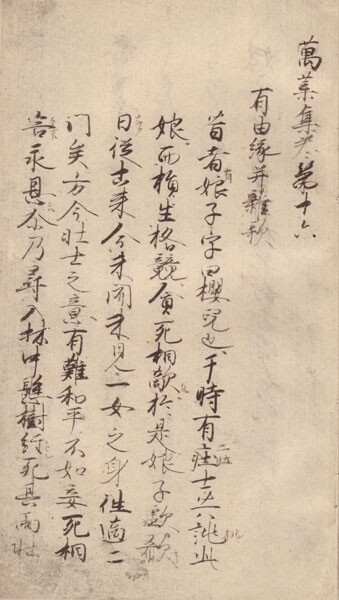 萬葉集巻第十六
有由縁并雜歌
昔者有娘子字曰櫻兒也于時有二壮士共誂此
娘而損生格競貪死相敵於是娘子歔欷
曰従古来今未聞未見一女之身往適二
門矣方今壮士之意有難和平不如妾死相
害永息尓乃尋入林中懸樹経死其両壮